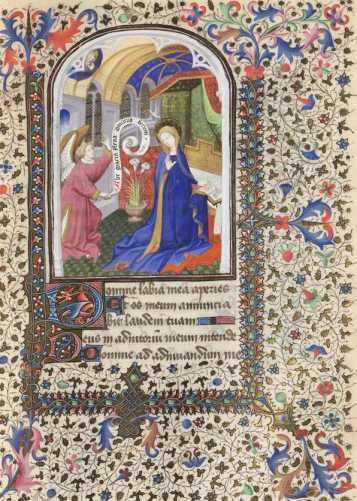 Ave maria gracia dominus tecum
Domine labia mea aperies
Et os meum annuncia
bit laudem tuam
Deus in adiutorium meum intende
Domine ad adiuuandum me